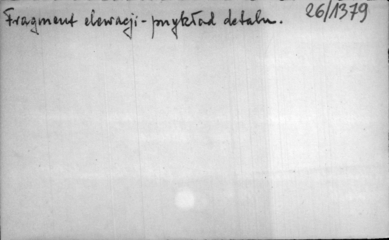 Fragment elewacji - przykład detalu. 26/1379